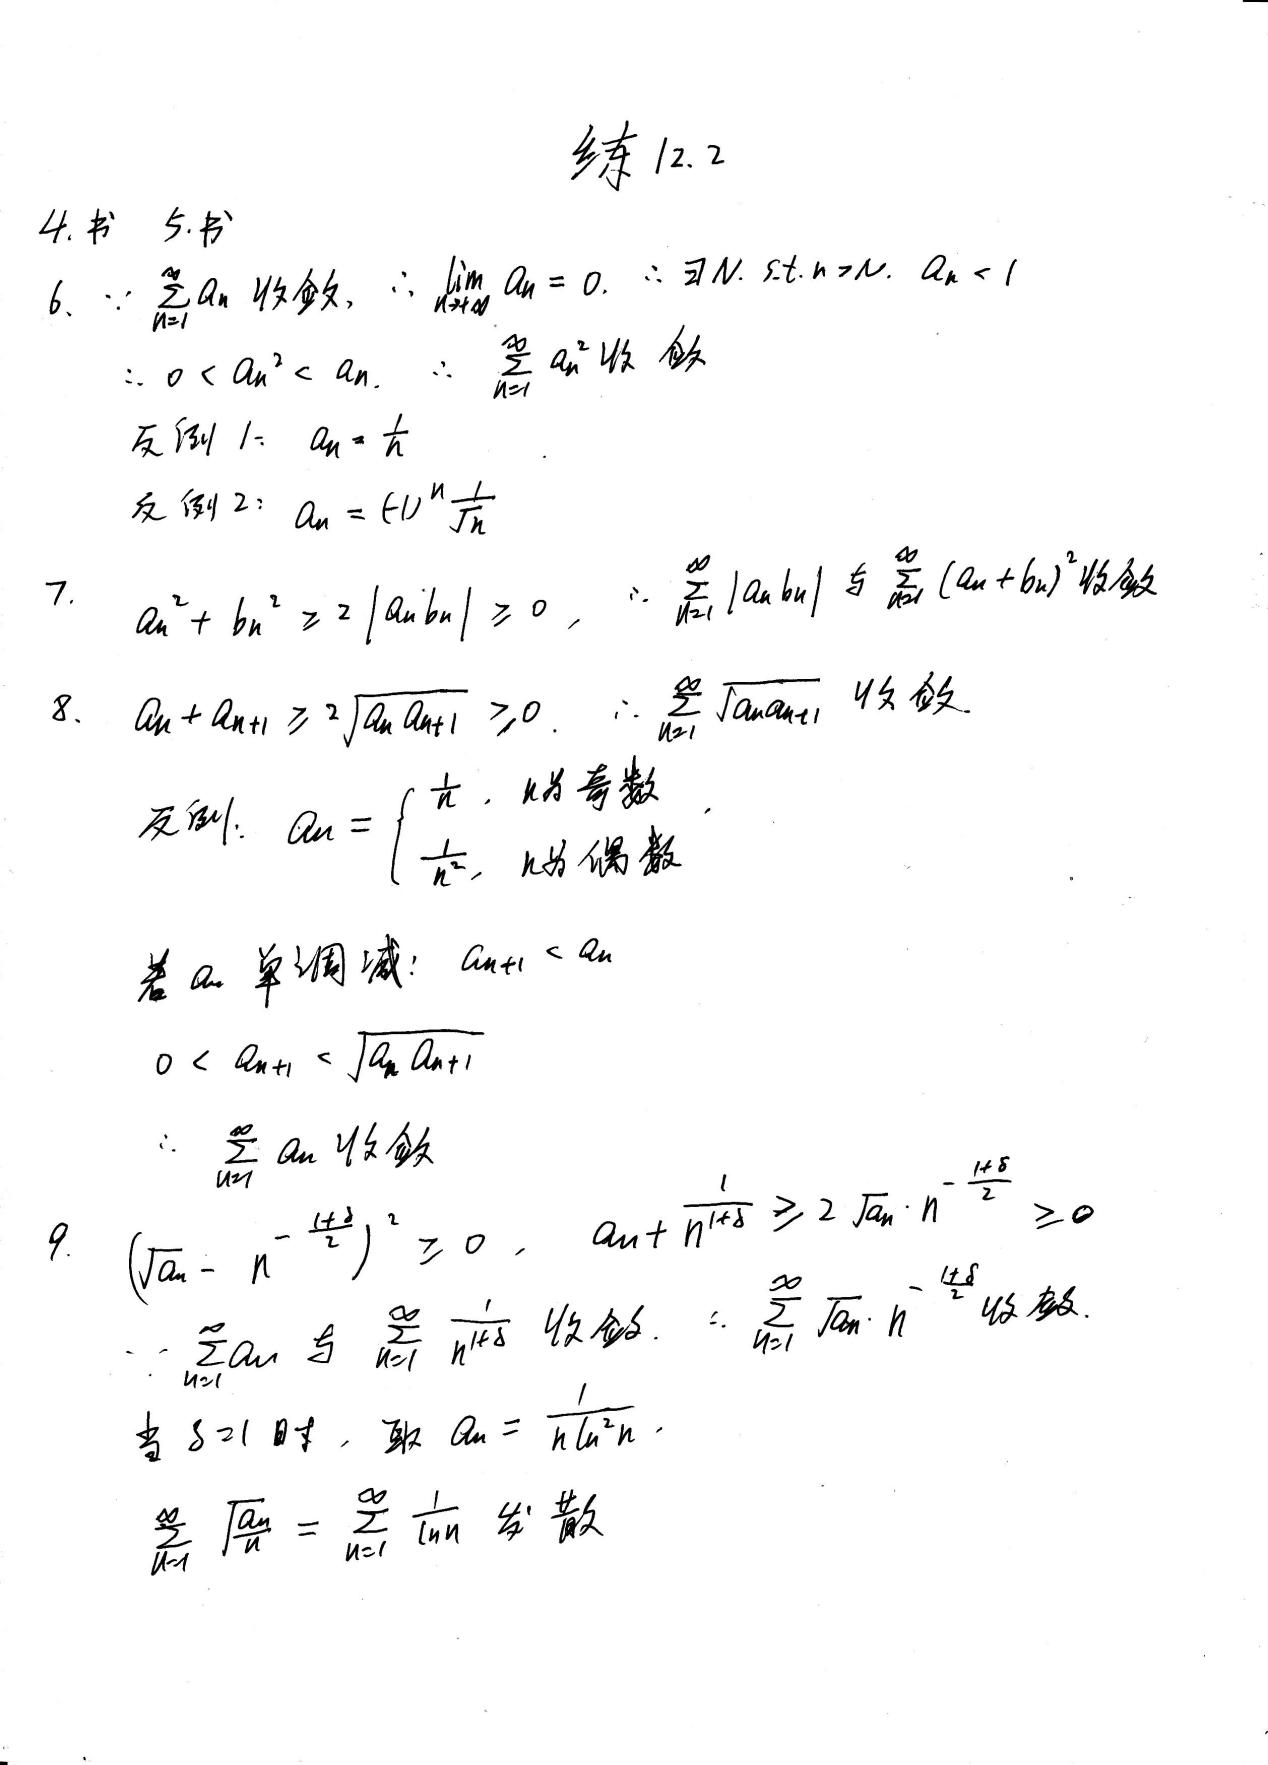 练 12.2
4.书 5.书
6. ∵ $\sum_{n=1}^{\infty} a_n$ 收敛, ∴ $\lim_{n\to+\infty} a_n = 0$. ∴ ∃N. s.t. n>N. $a_n < 1$
∴ $0 < a_n^2 < a_n$. ∴ $\sum_{n=1}^{\infty} a_n^2$ 收敛
反例1: $a_n = \frac{1}{n}$
反例2: $a_n = (-1)^n \frac{1}{\sqrt{n}}$
7. $a_n^2 + b_n^2 \geq 2|a_n b_n| \geq 0$, ∴ $\sum_{n=1}^{\infty} |a_n b_n|$ 与 $\sum_{n=1}^{\infty} (a_n + b_n)^2$ 收敛
8. $a_n + a_{n+1} \geq 2\sqrt{a_n a_{n+1}} \geq 0$. ∴ $\sum_{n=1}^{\infty} \sqrt{a_n a_{n+1}}$ 收敛.
反例: $a_n = \begin{cases} \frac{1}{n}, & n为奇数 \\ \frac{1}{n^2}, & n为偶数 \end{cases}$
若 $a_n$ 单调减: $a_{n+1} < a_n$
$0 < a_{n+1} < \sqrt{a_n a_{n+1}}$
∴ $\sum_{n=1}^{\infty} a_n$ 收敛
9. $(\sqrt{a_n} - n^{-\frac{1+\delta}{2}})^2 \geq 0$, $a_n + \frac{1}{n^{1+\delta}} \geq 2\sqrt{a_n} \cdot n^{-\frac{1+\delta}{2}} \geq 0$
∵ $\sum_{n=1}^{\infty} a_n$ 与 $\sum_{n=1}^{\infty} \frac{1}{n^{1+\delta}}$ 收敛. ∴ $\sum_{n=1}^{\infty} \sqrt{a_n} \cdot n^{-\frac{1+\delta}{2}}$ 收敛.
当 $\delta = 1$ 时, 取 $a_n = \frac{1}{n \ln^2 n}$.
$\sum_{n=1}^{\infty} \sqrt{\frac{a_n}{n}} = \sum_{n=1}^{\infty} \frac{1}{\ln n}$ 发散